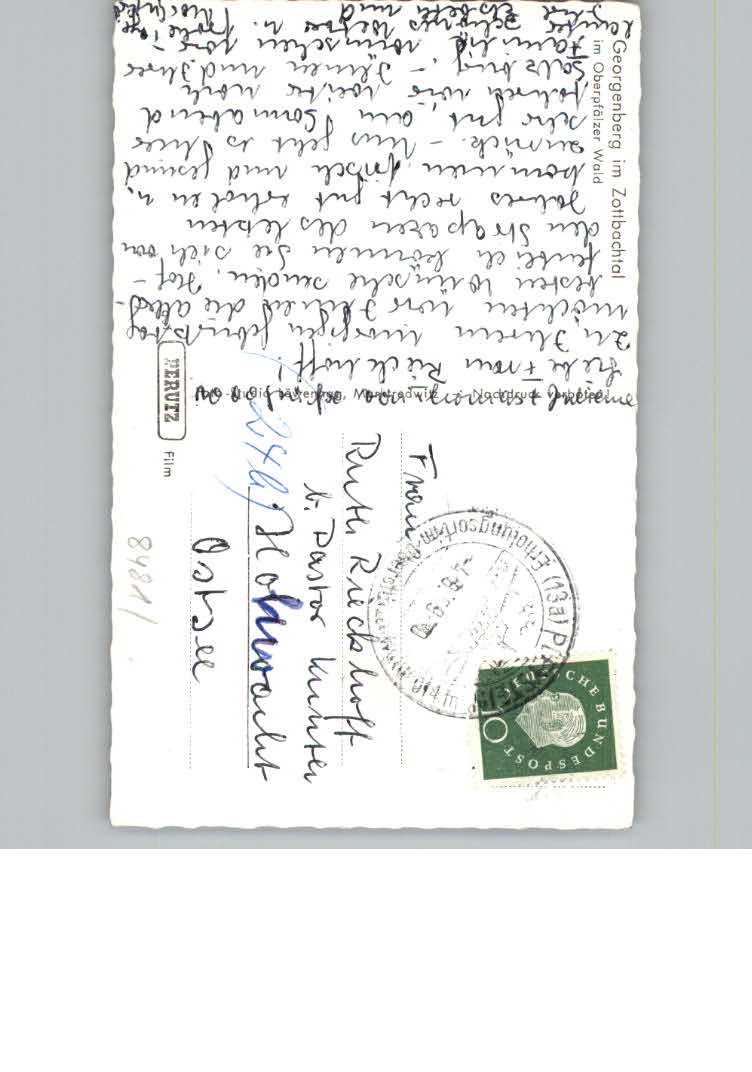 Georgenberg im Zottbachtal
im Oberpfälzer Wald
Liebe Frau Rieckhoff!
Zu Ihrem morgigen Geburtstag
möchten wir Ihnen die aller-
besten Wünsche senden. Hof-
fentlich können Sie sich von
den Strapazen des letzten
Jahres recht gut erholen u.
kommen frisch und gesund
zurück. - Uns geht es hier
sehr gut, am Sonnabend
fahren wir weiter nach
Salzburg. - Ihnen und Ihrer
Familie wünschen wir
schönes Wetter u.
Ihre Elsbeth und
PERUTZ
Film
Nachdruck verboten
Frau
Ruth Rieckhoff
b. Pastor
(24b) Hohwacht
Ostsee
8481
(13a)
DEUTSCHE BUNDESPOST
10